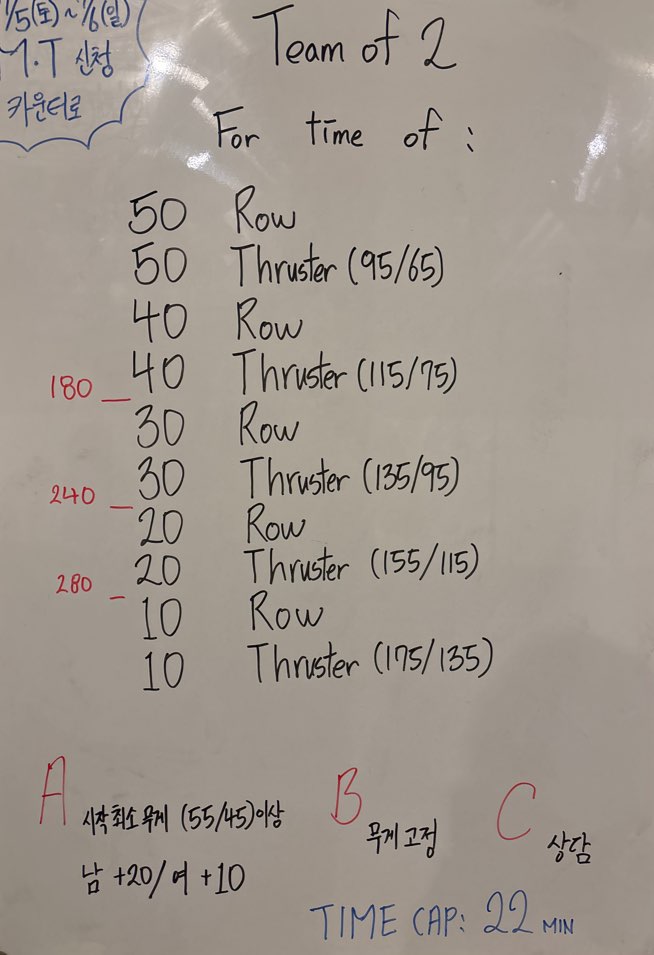 /5(토)~ 7/6(일)
M.T 신청
카운터로
Team of 2
For time of :
50 Row
50 Thruster (95/65)
40 Row
40 Thruster (115/75)
180
30 Row
30 Thruster (135/95)
240
20 Row
20 Thruster (155/115)
280
10 Row
10 Thruster (175/135)
A 시작 최소 무게 (55/45)이상
남 +20/여 +10
B 무게 고정
C 상담
TIME CAP: 22 MIN